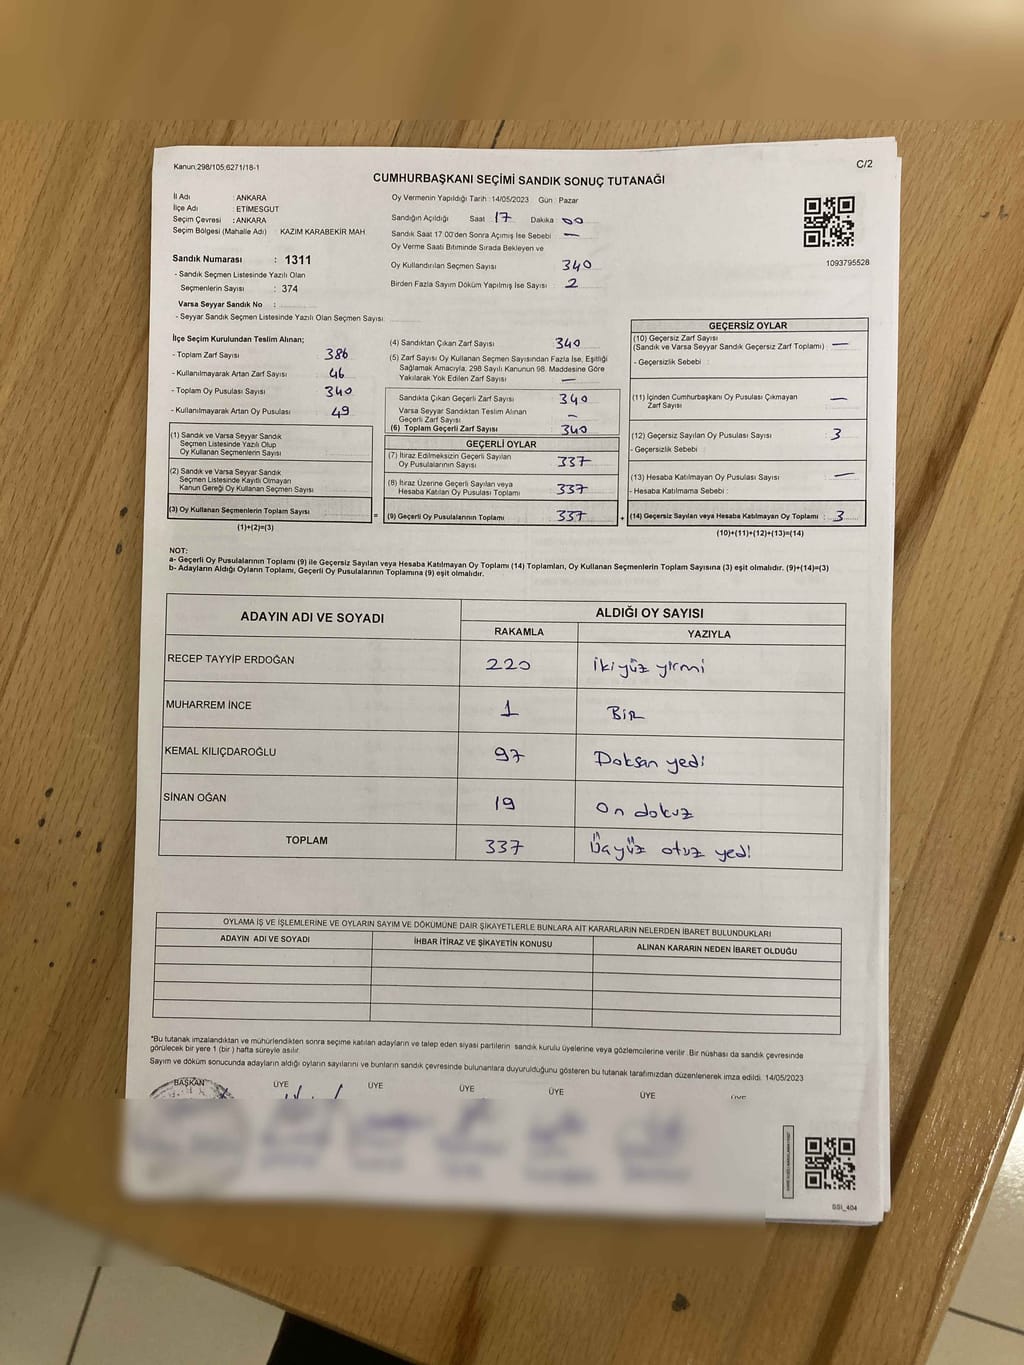 Kanun;298/105;6271/18-1
C/2
CUMHURBAŞKANI SEÇİMİ SANDIK SONUÇ TUTANAĞI
İl Adı : ANKARA
İlçe Adı : ETİMESGUT
Seçim Çevresi : ANKARA
Seçim Bölgesi (Mahalle Adı) : KAZIM KARABEKİR MAH
Sandık Numarası : 1311
- Sandık Seçmen Listesinde Yazılı Olan
Seçmenlerin Sayısı : 374
Varsa Seyyar Sandık No :
- Seyyar Sandık Seçmen Listesinde Yazılı Olan Seçmen Sayısı
Oy Vermenin Yapıldığı Tarih : 14/05/2023 Gün : Pazar
Sandığın Açıldığı Saat 17 Dakika 00
Sandık Saat 17:00'den Sonra Açımış İse Sebebi —
Oy Verme Saati Bitiminde Sırada Bekleyen ve
Oy Kullandırılan Seçmen Sayısı 340
Birden Fazla Sayım Döküm Yapılmış İse Sayısı : 2
1093795528
İlçe Seçim Kurulundan Teslim Alınan;
- Toplam Zarf Sayısı 386
- Kullanılmayarak Artan Zarf Sayısı : 46
- Toplam Oy Pusulası Sayısı 340
- Kullanılmayarak Artan Oy Pusulası : 49
(1) Sandık ve Varsa Seyyar Sandık
Seçmen Listesinde Yazılı Olup
Oy Kullanan Seçmenlerin Sayısı
(2) Sandık ve Varsa Seyyar Sandık
Seçmen Listesinde Kayıtlı Olmayan
Kanun Gereği Oy Kullanan Seçmen Sayısı
(3) Oy Kullanan Seçmenlerin Toplam Sayısı
(1)+(2)=(3)
=
(4) Sandıktan Çıkan Zarf Sayısı 340
(5) Zarf Sayısı Oy Kullanan Seçmen Sayısından Fazla İse, Eşitliği
Sağlamak Amacıyla, 298 Sayılı Kanunun 98. Maddesine Göre
Yakılarak Yok Edilen Zarf Sayısı : —
Sandıkta Çıkan Geçerli Zarf Sayısı : 340
Varsa Seyyar Sandıktan Teslim Alınan
Geçerli Zarf Sayısı : —
(6) Toplam Geçerli Zarf Sayısı : 340
GEÇERLİ OYLAR
(7) İtiraz Edilmeksizin Geçerli Sayılan
Oy Pusulalarının Sayısı : 337
(8) İtiraz Üzerine Geçerli Sayılan veya
Hesaba Katılan Oy Pusulası Toplamı : 337
(9) Geçerli Oy Pusulalarının Toplamı : 337
+
GEÇERSİZ OYLAR
(10) Geçersiz Zarf Sayısı
(Sandık ve Varsa Seyyar Sandık Geçersiz Zarf Toplamı) : —
- Geçersizlik Sebebi :
(11) İçinden Cumhurbaşkanı Oy Pusulası Çıkmayan
Zarf Sayısı : —
(12) Geçersiz Sayılan Oy Pusulası Sayısı : 3
- Geçersizlik Sebebi :
(13) Hesaba Katılmayan Oy Pusulası Sayısı : —
- Hesaba Katılmama Sebebi :
(14) Geçersiz Sayılan veya Hesaba Katılmayan Oy Toplamı : 3
(10)+(11)+(12)+(13)=(14)
NOT:
a- Geçerli Oy Pusulalarının Toplamı (9) ile Geçersiz Sayılan veya Hesaba Katılmayan Oy Toplamı (14) Toplamları, Oy Kullanan Seçmenlerin Toplam Sayısına (3) eşit olmalıdır. (9)+(14)=(3)
b- Adayların Aldığı Oyların Toplamı, Geçerli Oy Pusulalarının Toplamına (9) eşit olmalıdır.
ADAYIN ADI VE SOYADI ALDIĞI OY SAYISI
RAKAMLA YAZIYLA
RECEP TAYYİP ERDOĞAN 220 ikiyüz yirmi
MUHARREM İNCE 1 BİR
KEMAL KILIÇDAROĞLU 97 Doksan yedi
SİNAN OĞAN 19 On dokuz
TOPLAM 337 Üçyüz otuz yedi
OYLAMA İŞ VE İŞLEMLERİNE VE OYLARIN SAYIM VE DÖKÜMÜNE DAİR ŞİKAYETLERLE BUNLARA AİT KARARLARIN NELERDEN İBARET BULUNDUKLARI
ADAYIN ADI VE SOYADI İHBAR İTİRAZ VE ŞİKAYETİN KONUSU ALINAN KARARIN NEDEN İBARET OLDUĞU
*Bu tutanak imzalandıktan ve mühürlendikten sonra seçime katılan adayların ve talep eden siyasi partilerin sandık kurulu üyelerine veya gözlemcilerine verilir. Bir nüshası da sandık çevresinde
görülecek bir yere 1 (bir) hafta süreyle asılır.
Sayım ve döküm sonucunda adayların aldığı oyların sayılarını ve bunların sandık çevresinde bulunanlara duyurulduğunu gösteren bu tutanak tarafımızdan düzenlenerek imza edildi. 14/05/2023
BAŞKAN ÜYE ÜYE ÜYE ÜYE ÜYE ÜYE
SSI_404